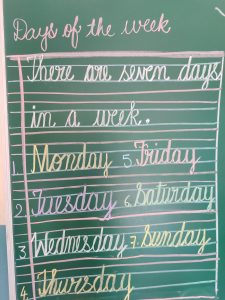 Days of the week
There are seven days
in a week.
1. Monday 5. Friday
2. Tuesday 6. Saturday
3. Wednesday 7. Sunday
4. Thursday